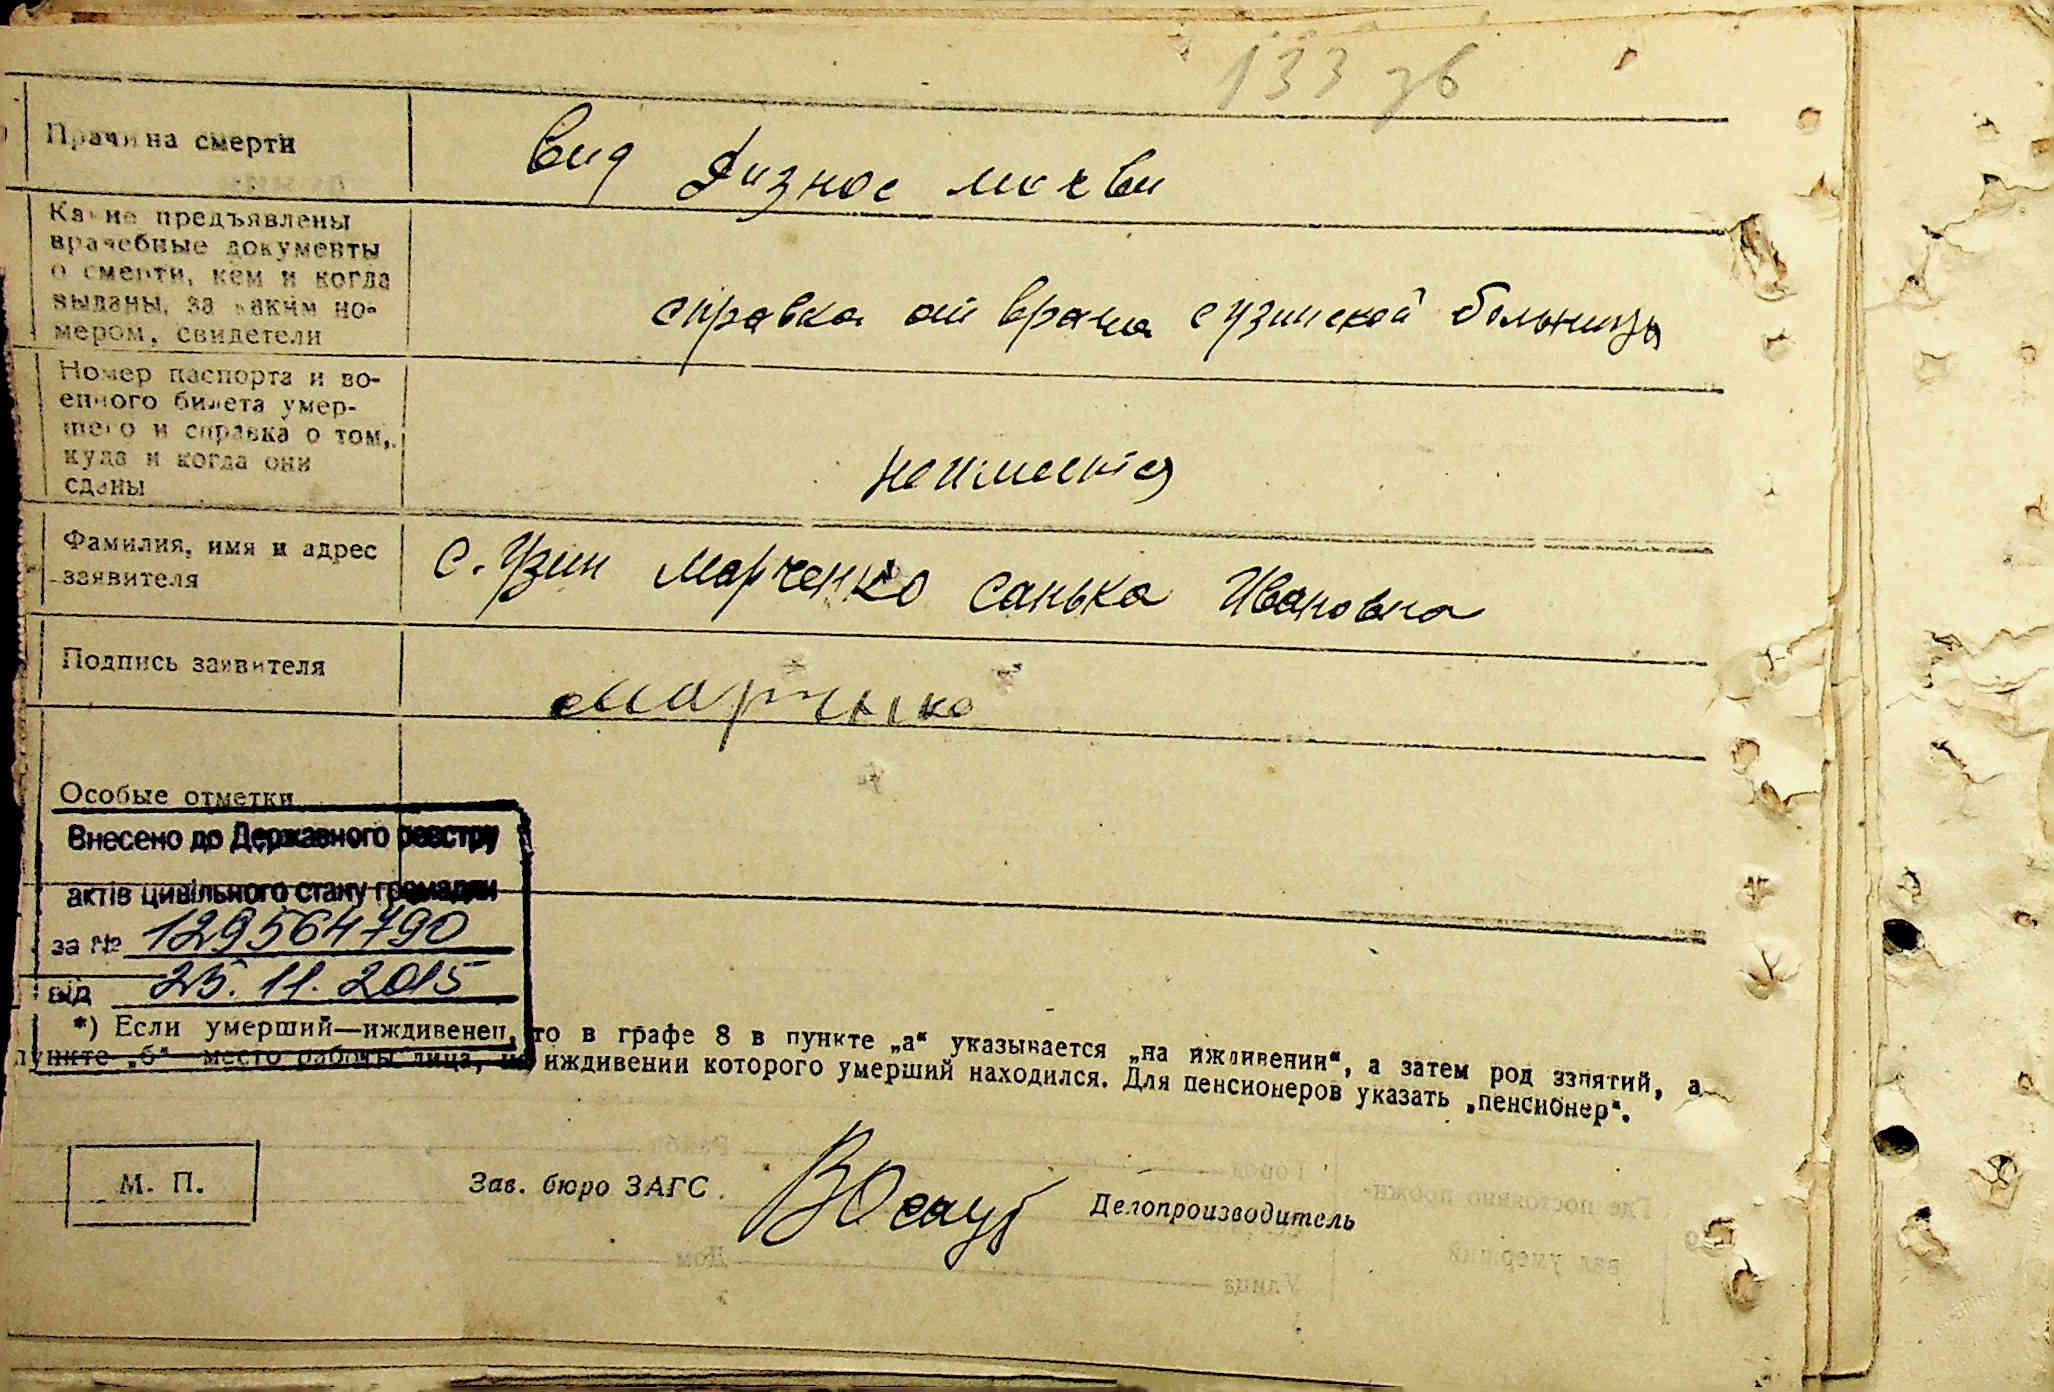 133 зв
Причина смерти
Вид
Какие предъявлены
врачебные документы
о смерти, кем и когда
выданы, за каким но-
мером, свидетели
справка от врача сузинской больницы
Номер паспорта и во-
енного билета умер-
шего и справка о том,
куда и когда они
сданы
неимеется
Фамилия, имя и адрес
заявителя
с. Узин Марченко Санька Ивановна
Подпись заявителя
Марченко
Особые отметки
Внесено до Державного реєстру
актів цивільного стану громадян
за № 129564790
від 25.11.2015
*) Если умерший—иждивенец, то в графе 8 в пункте „а“ указывается „на иждивении“, а затем род занятий, а
пункте „б“ место работы лица, на иждивении которого умерший находился. Для пенсионеров указать „пенсионер“.
М. П.
Зав. бюро ЗАГС
Делопроизводитель